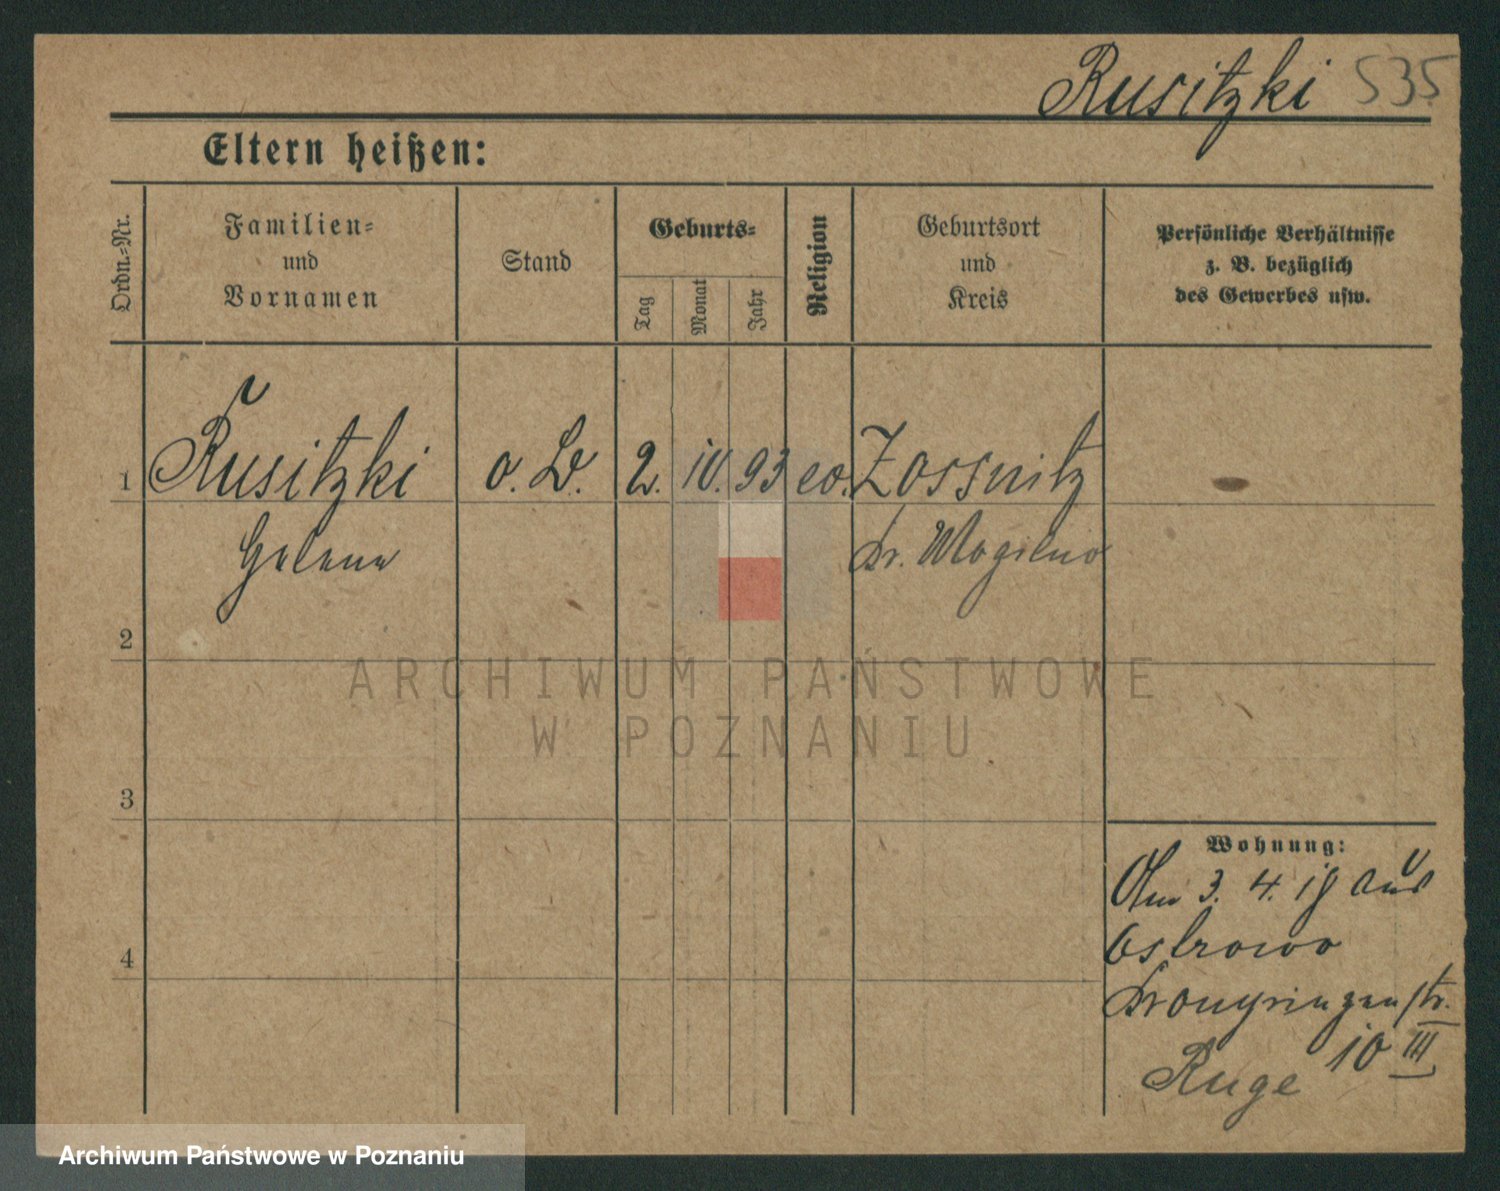 Rusitzki 535
Eltern heißen:
Ordn.-Nr.
Familien-
und
Vornamen
Stand
Geburts-
Tag
Monat
Jahr
Religion
Geburtsort
und
Kreis
Persönliche Verhältnisse
z. B. bezüglich
des Gewerbes usw.
1 Rusitzki o. B. 2. IV. 93 ev.
Kr. Mogilno
2
3
4
Wohnung:
Am 3. 4. 18 aus
Ostrowo
Kronprinzenstr.
10 III
Ruge
ARCHIWUM PAŃSTWOWE
W POZNANIU
Archiwum Państwowe w Poznaniu